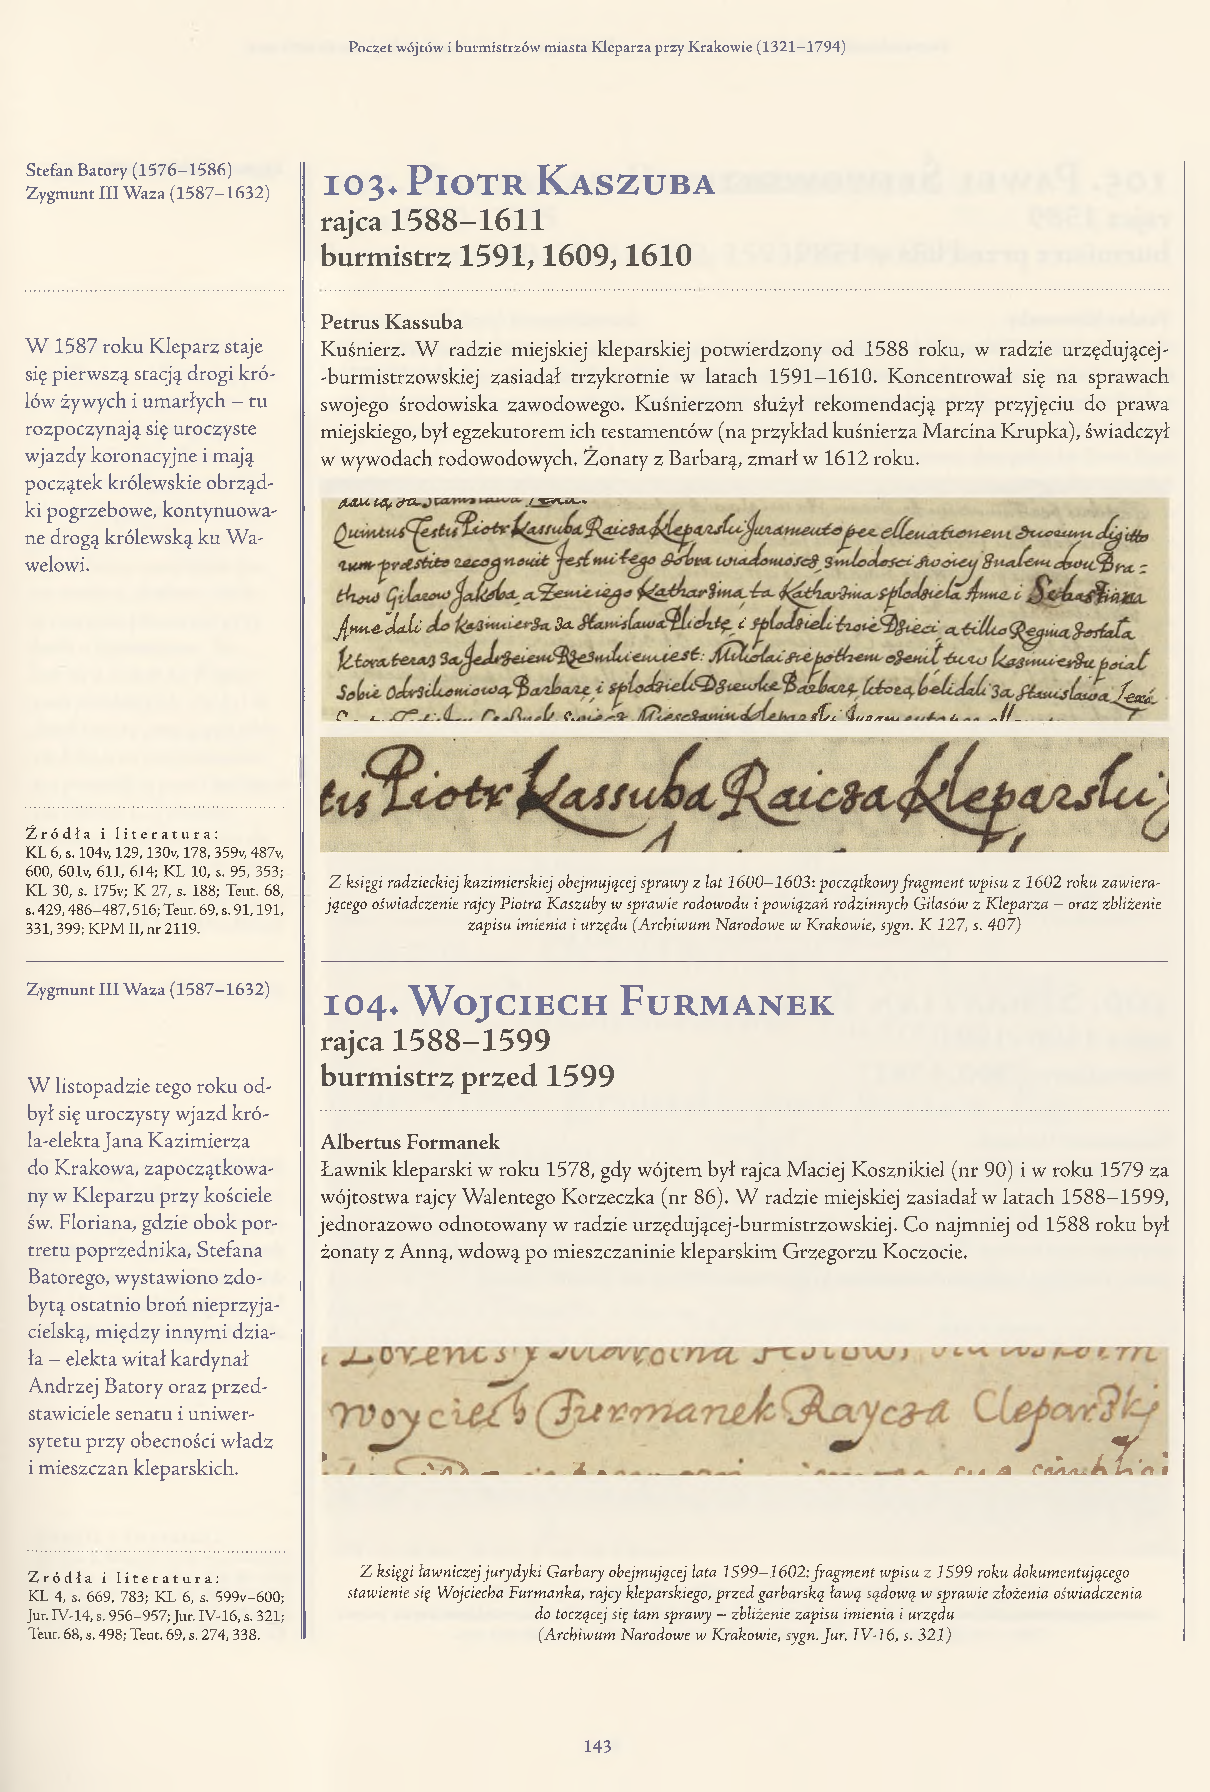 Poczet wójtów i burmistrzów miasta Kleparza przy Krakowie (1321–1794)
Stefan Batory (1576–1586)
Zygmunt III Waza (1587–1632)
W 1587 roku Kleparz staje
się pierwszą stacją drogi kró-
lów żywych i umarłych – tu
rozpoczynają się uroczyste
wjazdy koronacyjne i mają
początek królewskie obrząd-
ki pogrzebowe, kontynuowa-
ne drogą królewską ku Wa-
welowi.
Źródła i literatura:
KL 6, s. 104v, 129, 130v, 178, 359v, 487v,
600, 601v, 611, 614; KL 10, s. 95, 353;
KL 30, s. 175v; K 27, s. 188; Teut. 68,
s. 429, 486–487, 516; Teut. 69, s. 91, 191,
331, 399; KPM II, nr 2119.
103. Piotr Kaszuba
rajca 1588–1611
burmistrz 1591, 1609, 1610
Petrus Kassuba
Kuśnierz. W radzie miejskiej kleparskiej potwierdzony od 1588 roku, w radzie urzędującej-
-burmistrzowskiej zasiadał trzykrotnie w latach 1591–1610. Koncentrował się na sprawach
swojego środowiska zawodowego. Kuśnierzom służył rekomendacją przy przyjęciu do prawa
miejskiego, był egzekutorem ich testamentów (na przykład kuśnierza Marcina Krupka), świadczył
w wywodach rodowodowych. Żonaty z Barbarą, zmarł w 1612 roku.
Quintus Testis Piotr Kassuba Raicza Kleparski Juramento per elleuationem duorum digitto
rum prestito recognouit Jest mi tego dobra wiadomosc z mlodosci swoiey znalem dwu Bra-
thow Gilasow Jakoba, a Zenie iego Katharzina, ta Katharzina splodziela Anne i Sebastiana
Anne dali do kazmierza za Stanislawa Plichtę i splodzieli troie Dzieci, a tilko Regina zostala
Ktora teraz za Jedrzeiem
Sobie Barbarę, i splodzieli Dziewke Barbarę, ktorą belidali za Stanislawa
tis Piotr Kassuba Raicza Kleparski J
Z księgi radzieckiej kazimierskiej obejmującej sprawy z lat 1600–1603: początkowy fragment wpisu z 1602 roku zawiera-
jącego oświadczenie rajcy Piotra Kaszuby w sprawie rodowodu i powiązań rodzinnych Gilasów z Kleparza – oraz zbliżenie
zapisu imienia i urzędu (Archiwum Narodowe w Krakowie, sygn. K 127, s. 407)
Zygmunt III Waza (1587–1632)
W listopadzie tego roku od-
był się uroczysty wjazd kró-
la-elekta Jana Kazimierza
do Krakowa, zapoczątkowa-
ny w Kleparzu przy kościele
św. Floriana, gdzie obok por-
tretu poprzednika, Stefana
Batorego, wystawiono zdo-
bytą ostatnio broń nieprzyja-
cielską, między innymi dzia-
ła – elekta witał kardynał
Andrzej Batory oraz przed-
stawiciele senatu i uniwer-
sytetu przy obecności władz
i mieszczan kleparskich.
Źródła i literatura:
KL 4, s. 669, 783; KL 6, s. 599v–600;
Jur. IV-14, s. 956–957; Jur. IV-16, s. 321;
Teut. 68, s. 498; Teut. 69, s. 274, 338.
104. Wojciech Furmanek
rajca 1588–1599
burmistrz przed 1599
Albertus Formanek
Ławnik kleparski w roku 1578, gdy wójtem był rajca Maciej Kosznikiel (nr 90) i w roku 1579 za
wójtostwa rajcy Walentego Korzeczka (nr 86). W radzie miejskiej zasiadał w latach 1588–1599,
jednorazowo odnotowany w radzie urzędującej-burmistrzowskiej. Co najmniej od 1588 roku był
żonaty z Anną, wdową po mieszczaninie kleparskim Grzegorzu Koczocie.
Woyciech Furmanek Raycza Cleparski
Z księgi ławniczej jurydyki Garbary obejmującej lata 1599–1602: fragment wpisu z 1599 roku dokumentującego
stawienie się Wojciecha Furmanka, rajcy kleparskiego, przed garbarską ławą sądową w sprawie złożenia oświadczenia
do toczącej się tam sprawy – zbliżenie zapisu imienia i urzędu
(Archiwum Narodowe w Krakowie, sygn. Jur. IV-16, s. 321)
143